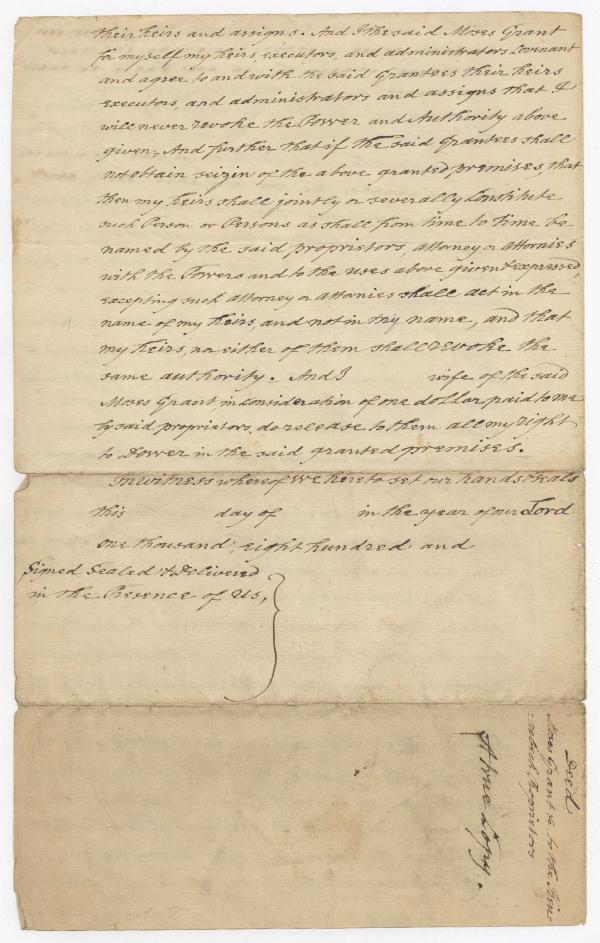 their heirs and assigns. And I the said Moses Grant
for myself my heirs, executors, and administrators Covenant
and agree to and with the said Grantees their heirs
executors, and administrators and assigns that I
will never revoke the Power and Authority above
given, And further that if the said Grantees shall
not obtain seizin of the above granted premises, that
then my heirs shall jointly or severally Constitute
such Person or Persons as shall from time to time be
named by the said proprietors, attorney or attornies
with the Powers and to the uses above given & expressed,
excepting such attorney or attornies shall act in the
name of my heirs, and not in my name, and that
my heirs, nor either of them shall revoke the
same authority. And I wife of the said
Moses Grant in consideration of one dollar paid to me
by said proprietors, do release to them all my right
to Dower in the said granted premises.
In witness whereof We hereto set our hands & seals
this day of in the year of our Lord
one thousand, eight hundred and
Signed Sealed & Delivered
in the Presence of Us,
A true Copy.
Deed
Moses Grant &c to the
Proprietors